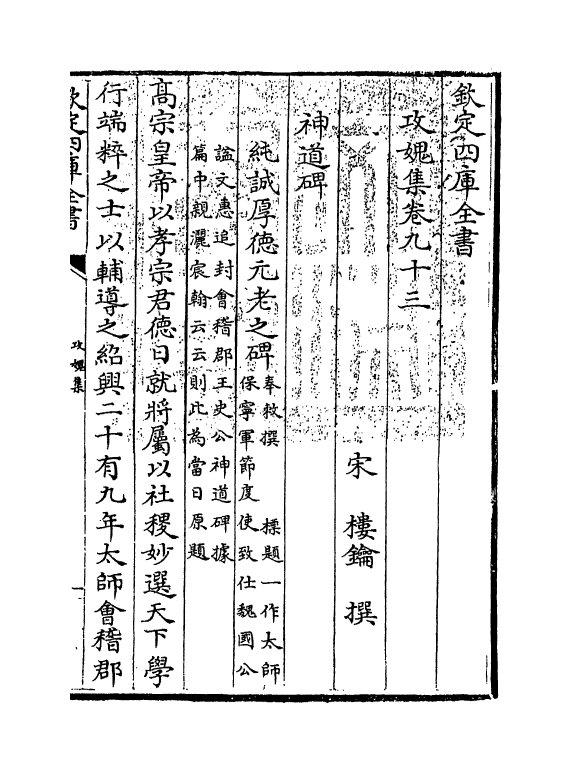 欽定四庫全書
攻媿集卷九十三
宋 樓鑰 撰
神道碑
純誠厚徳元老之碑
奉敕撰 標題一作太師
保寧軍節度使致仕魏國公
諡文惠追封會稽郡王史公神道碑據
篇中親灑宸翰云云則此為當日原題
髙宗皇帝以孝宗君德日就將屬以社稷妙選天下學
行端粹之士以輔導之紹興二十有九年太師會稽郡
欽定四庫全書
攻媿集
一